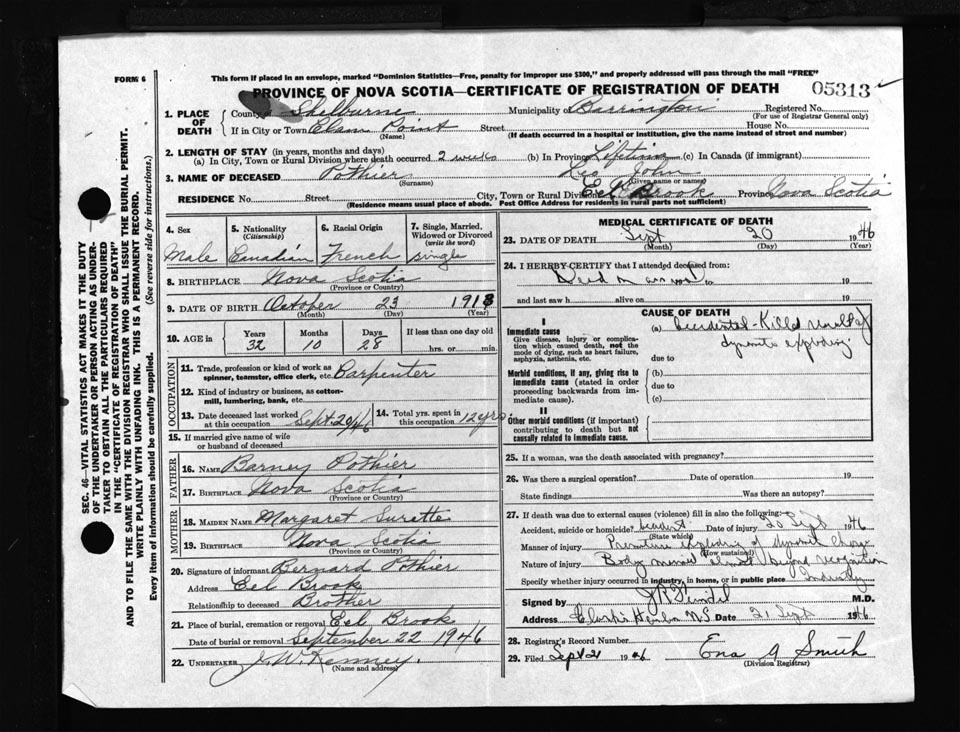 FORM 6
This form if placed in an envelope, marked "Dominion Statistics—Free, penalty for improper use $300," and properly addressed will pass through the mail "FREE"
PROVINCE OF NOVA SCOTIA—CERTIFICATE OF REGISTRATION OF DEATH 05313
1. PLACE OF DEATH County of Shelburne Municipality of Barrington Registered No. (For use of Registrar General only)
If in City or Town Clam Point (Name) Street House No.
(If death occurred in a hospital or institution, give the name instead of street and number)
2. LENGTH OF STAY (in years, months and days)
(a) In City, Town or Rural Division where death occurred 2 weeks (b) In Province Lifetime (c) In Canada (if immigrant)
3. NAME OF DECEASED Pothier (Surname) Leo John (Given name or names)
RESIDENCE No. Street City, Town or Rural Division Eel Brook Province Nova Scotia
(Residence means usual place of abode. Post Office Address for residents in rural parts not sufficient)
4. Sex Male
5. Nationality (Citizenship) Canadian
6. Racial Origin French
7. Single, Married, Widowed or Divorced (write the word) single
8. BIRTHPLACE Nova Scotia (Province or Country)
9. DATE OF BIRTH October (Month) 23 (Day) 1913 (Year)
10. AGE in Years 32 Months 10 Days 28 If less than one day old hrs. or min.
OCCUPATION
11. Trade, profession or kind of work as spinner, teamster, office clerk, etc. Carpenter
12. Kind of industry or business, as cotton-mill, lumbering, bank, etc.
13. Date deceased last worked at this occupation Sept. 20/46
14. Total yrs. spent in this occupation 12 yrs.
15. If married give name of wife or husband of deceased
FATHER
16. NAME Barney Pothier
17. BIRTHPLACE Nova Scotia (Province or Country)
MOTHER
18. MAIDEN NAME Margaret Surette
19. BIRTHPLACE Nova Scotia (Province or Country)
20. Signature of informant Bernard Pothier
Address Eel Brook
Relationship to deceased Brother
21. Place of burial, cremation or removal Eel Brook
Date of burial or removal September 22 1946
22. UNDERTAKER J. W. Kenney. (Name and address)
MEDICAL CERTIFICATE OF DEATH
23. DATE OF DEATH Sept (Month) 20 (Day) 1946 (Year)
24. I HEREBY CERTIFY that I attended deceased from:
Dead on arrival to 19
and last saw h alive on 19
CAUSE OF DEATH
I
Immediate cause
Give disease, injury or complication which caused death, not the mode of dying, such as heart failure, asphyxia, asthenia, etc.
(a) Accidental - Killed result of dynamite exploding.
due to
Morbid conditions, if any, giving rise to immediate cause (stated in order proceeding backwards from immediate cause).
(b)
due to
(c)
II
Other morbid conditions (if important) contributing to death but not causally related to immediate cause.
25. If a woman, was the death associated with pregnancy?
26. Was there a surgical operation? Date of operation 19
State findings Was there an autopsy?
27. If death was due to external causes (violence) fill in also the following:
Accident, suicide or homicide? accident (State which) Date of injury 20 Sept 1946
Manner of injury Premature exploding of dynamite charge (How sustained)
Nature of injury Body almost beyond recognition
Specify whether injury occurred in industry, in home, or in public place Industry
Signed by M.D.
Address Clark's Harbor N.S Date 21 Sept 1946
28. Registrar's Record Number
29. Filed Sept 21 1946 Ena A Smith (Division Registrar)
SEC. 46—VITAL STATISTICS ACT MAKES IT THE DUTY
OF THE UNDERTAKER OR PERSON ACTING AS UNDER-
TAKER TO OBTAIN ALL THE PARTICULARS REQUIRED
IN THE "CERTIFICATE OF REGISTRATION OF DEATH"
AND TO FILE THE SAME WITH THE DIVISION REGISTRAR WHO SHALL ISSUE THE BURIAL PERMIT.
WRITE PLAINLY WITH UNFADING INK. THIS IS A PERMANENT RECORD.
Every item of information should be carefully supplied. (See reverse side for instructions.)